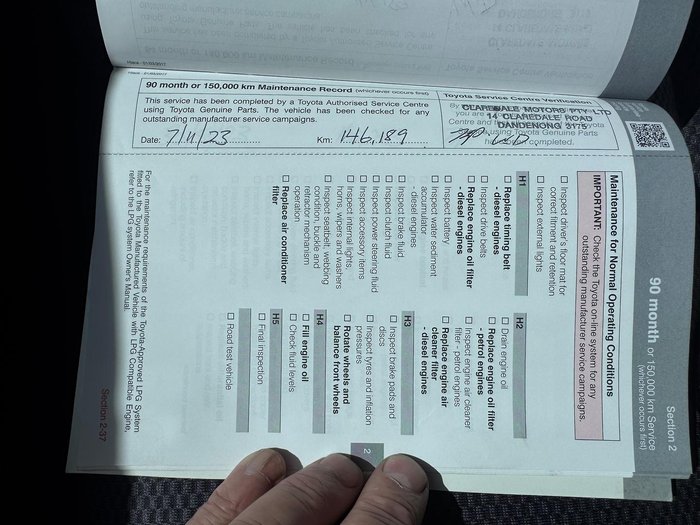 Hiace - 01/03/2017
Hiace - 01/03/2017
90 month or 150,000 km Maintenance Record (whichever occurs first)
This service has been completed by a Toyota Authorised Service Centre
using Toyota Genuine Parts. The vehicle has been checked for any
outstanding manufacturer service campaigns.
Date: 7/11/23
Km: 146,189
Toyota Service Centre Verification
CLAREDALE MOTORS PTY LTD
14 CLAREDALE ROAD
DANDENONG 3175
using Toyota Genuine Parts
completed.
Section 2
90 month or 150,000 km Service
(whichever occurs first)
Maintenance for Normal Operating Conditions
IMPORTANT: Check the Toyota on-line system for any
outstanding manufacturer service campaigns.
Inspect driver's floor mat for
correct fitment and retention
Inspect external lights
H1
Replace timing belt
- diesel engines
Inspect drive belts
Replace engine oil filter
- diesel engines
Inspect battery
Inspect water sediment
accumulator
- diesel engines
Inspect brake fluid
Inspect clutch fluid
Inspect power steering fluid
Inspect accessory items
Inspect internal lights,
horns, wipers and washers
Inspect seatbelt; webbing
condition, buckle and
retractor mechanism
operation
Replace air conditioner
filter
H2
Drain engine oil
Replace engine oil filter
- petrol engines
Inspect engine air cleaner
filter - petrol engines
Replace engine air
cleaner filter
- diesel engines
H3
Inspect brake pads and
discs
Inspect tyres and inflation
pressures
Rotate wheels and
balance front wheels
H4
Fill engine oil
Check fluid levels
H5
Final inspection
Road test vehicle
For the maintenance requirements of the Toyota-Approved LPG System
fitted to the Toyota Manufactured Vehicle with LPG Compatible Engine,
refer to the LPG system Owner's Manual.
Section 2-37
2